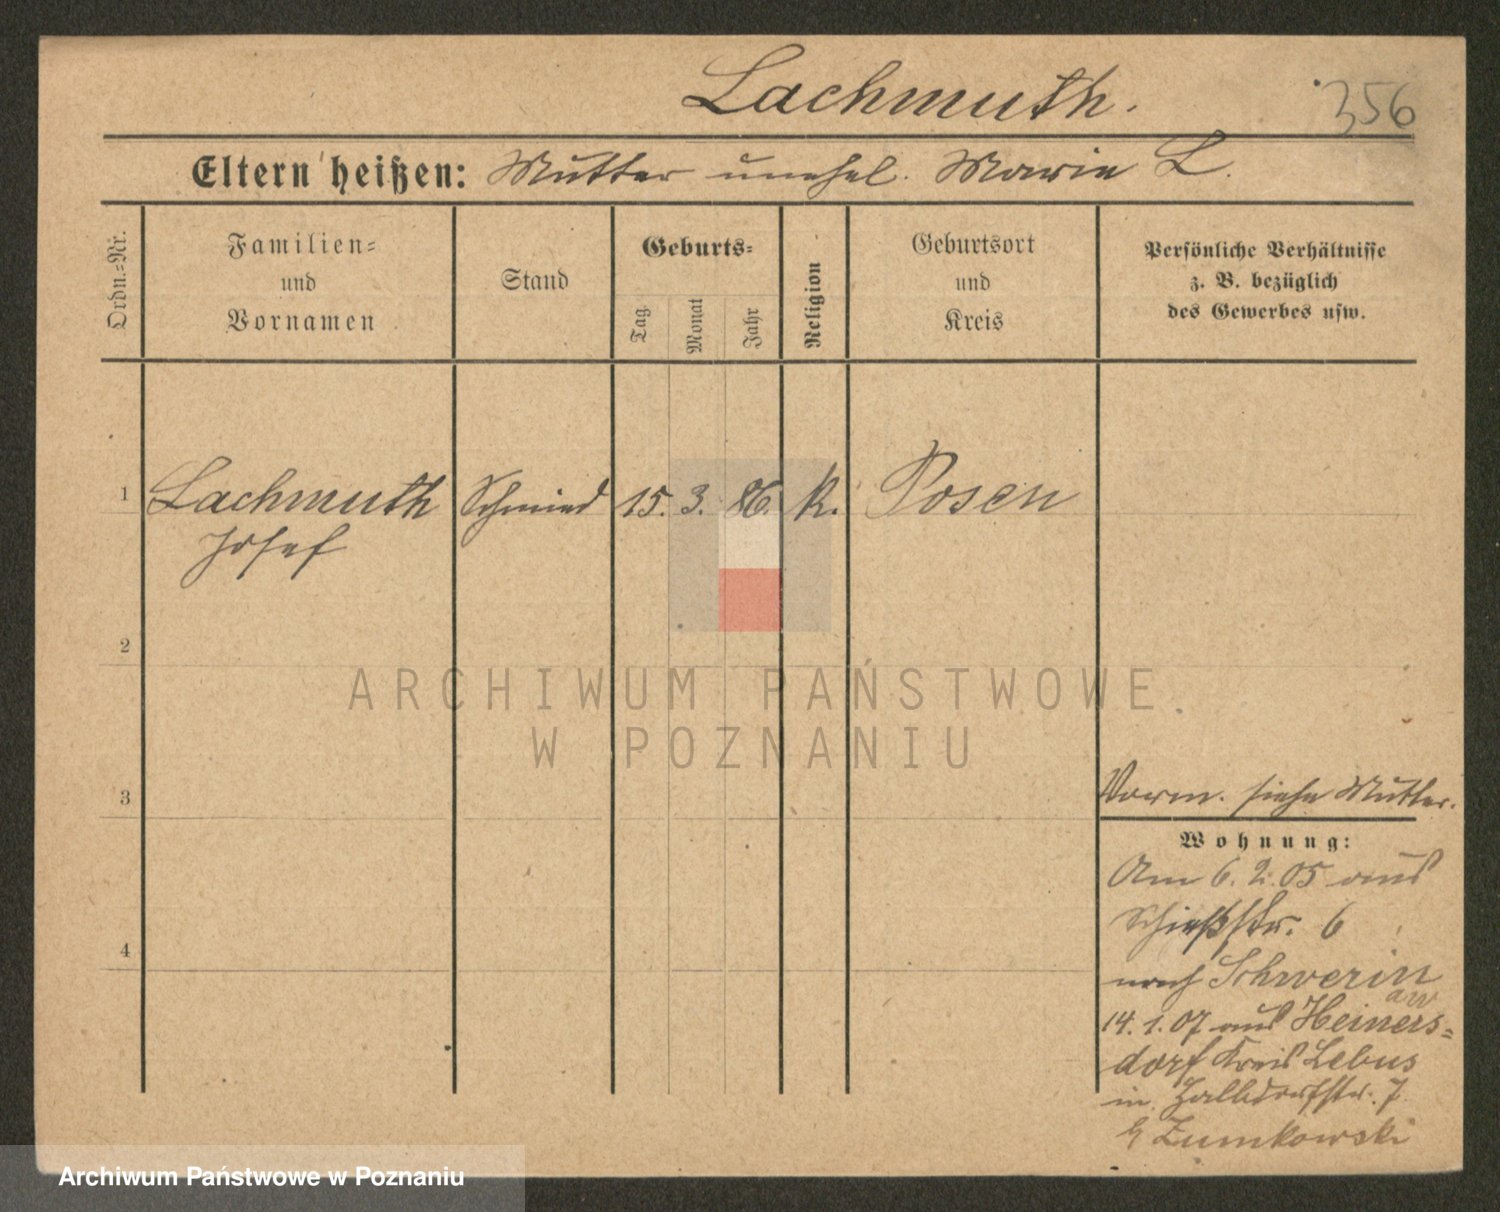 Lachmuth.
356
Eltern heißen: Mutter unehel. Marie L.
Ordn.=Nr.
Familien=
und
Vornamen
Stand
Geburts=
Tag
Monat
Jahr
Religion
Geburtsort
und
Kreis
Persönliche Verhältnisse
z. B. bezüglich
des Gewerbes usw.
1 Lachmuth Schmied 15. 3. 86. k. Posen
Josef
2
ARCHIWUM PAŃSTWOWE
W POZNANIU
3
Vorm. siehe Mutter.
Wohnung:
Am 6. 2. 05 aus
Schießstr. 6
4
nach Schwerin
a/W
14. 1. 07 aus Heiners=
dorf Kreis Lebus
in. 7.
Zumkowski
Archiwum Państwowe w Poznaniu